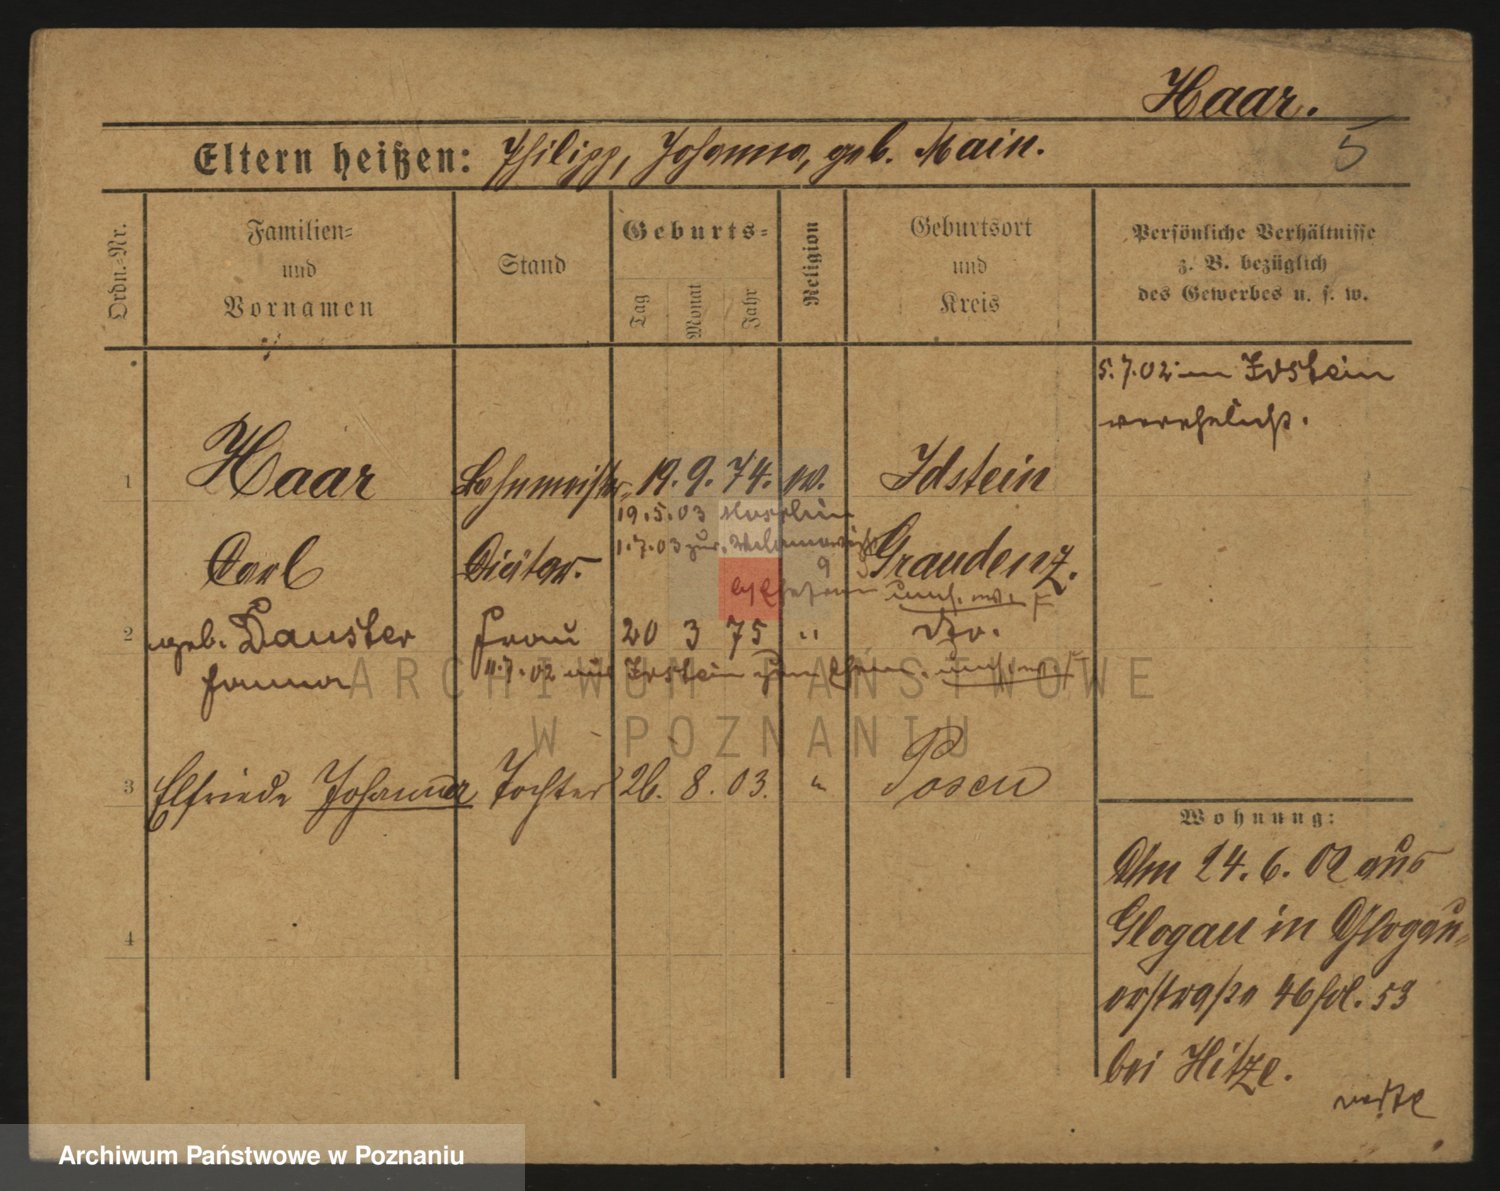 Haar.
5
Eltern heißen: Philipp, Johanna, geb. Main.
Ordn.-Nr.
Familien-
und
Vornamen
Stand
Geburts-
Tag
Monat
Jahr
Religion
Geburtsort
und
Kreis
Persönliche Verhältnisse
z. B. bezüglich
des Gewerbes u. s. w.
5.7.02 in Idstein
verehelicht.
1 Haar Bahnmeister- 19. 9. 74. ev. Idstein
19.5.03
Carl Diätar. 1.7.03 zur. Graudenz.
2 geb. Dauster Frau 20 3 75 " Do.
Hanna 11.7.02 aus Idstein zum Ehem.
3 Elfriede Johanna Tochter 26. 8. 03. " Posen
Wohnung:
Am 24.6.02 aus
Glogau in Glogau-
erstraße 46 fol. 53
bei Hitze.
4
ARCHIWUM PAŃSTWOWE
W POZNANIU
Archiwum Państwowe w Poznaniu